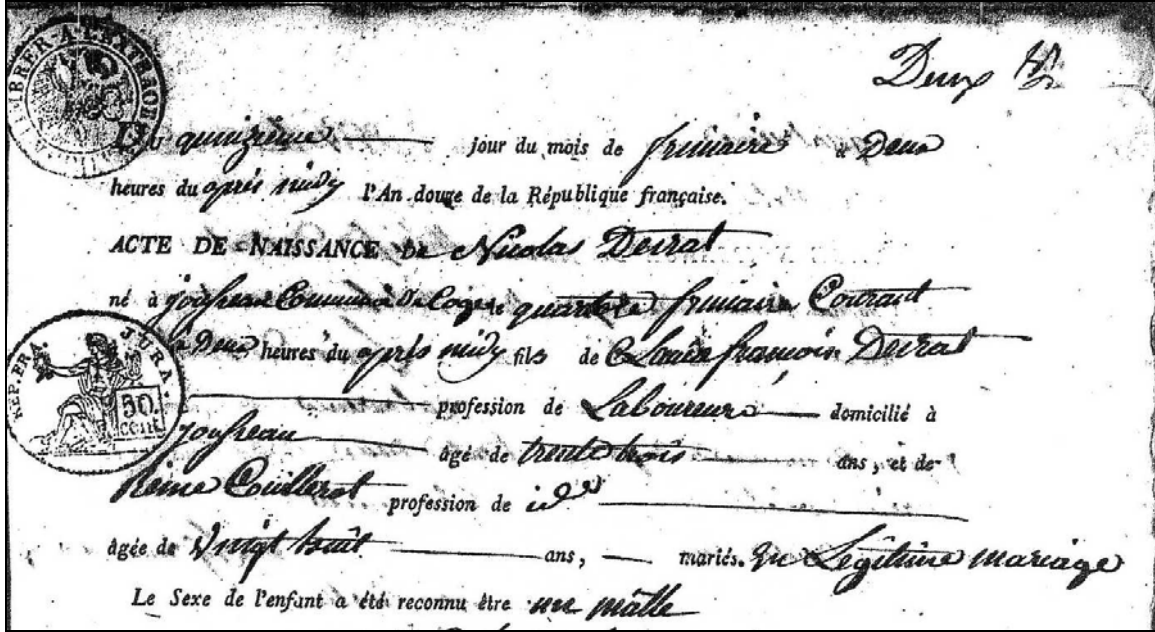 Deux
TIMBRER A L'EXTRAOR
Du quinzieme jour du mois de frimaire à Deux
heures du après midy l'An douze de la République française.
ACTE DE NAISSANCE de Nicolas Derrat
né à jousseau Commune De Coges le quatorze frimaire Courant
à Deux heures du après midy fils de Claude françois Derrat
REP. FRA. JURA. 50. CENT.
profession de Laboureur domicilié à
jousseau âgé de trente trois ans, et de
Reine Cuillerot profession de id
âgée de Vingt huit ans, mariés. en Légitime mariage
Le Sexe de l'enfant a été reconnu être un mâlle